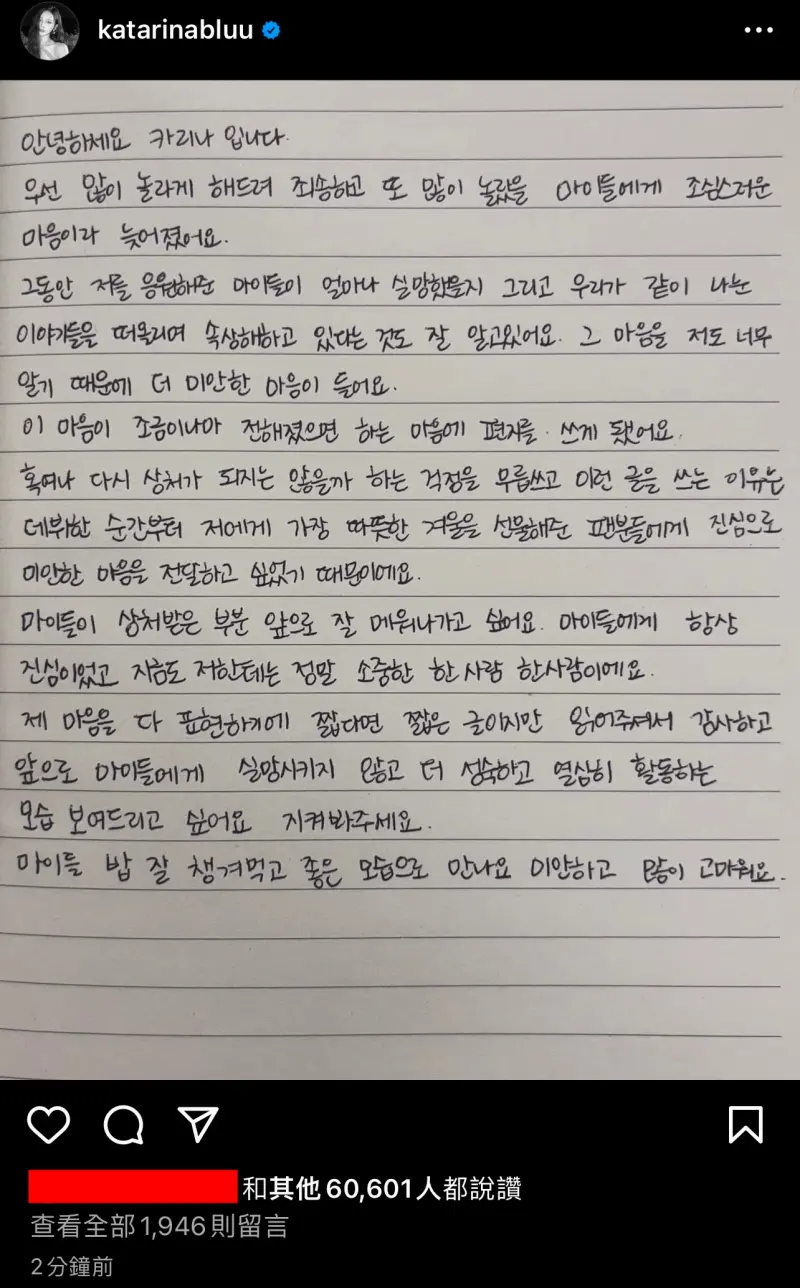 katarinabluu
안녕하세요 카리나 입니다.
우선 많이 놀라게 해드려 죄송하고 또 많이 놀랐을 마이들에게 조심스러운
마음이라 늦어졌어요.
그동안 저를 응원해준 마이들이 얼마나 실망했을지 그리고 우리가 같이 나눈
이야기들을 떠올리며 속상해하고 있다는 것도 잘 알고있어요. 그 마음을 저도 너무
알기 때문에 더 미안한 마음이 들어요.
이 마음이 조금이나마 전해졌으면 하는 마음에 편지를 쓰게 됐어요.
혹여나 다시 상처가 되지는 않을까 하는 걱정을 무릅쓰고 이런 글을 쓰는 이유는
데뷔한 순간부터 저에게 가장 따뜻한 겨울을 선물해준 팬분들에게 진심으로
미안한 마음을 전달하고 싶었기 때문이에요.
마이들이 상처받은 부분 앞으로 잘 메워나가고 싶어요. 마이들에게 항상
진심이었고 지금도 저한테는 정말 소중한 한사람 한사람이에요.
제 마음을 다 표현하기에 짧다면 짧은 글이지만 읽어주셔서 감사하고
앞으로 마이들에게 실망시키지 않고 더 성숙하고 열심히 활동하는
모습 보여드리고 싶어요 지켜봐주세요.
마이들 밥 잘 챙겨먹고 좋은 모습으로 만나요 미안하고 많이 고마워요.
和其他60,601人都說讚
查看全部1,946則留言
2分鐘前